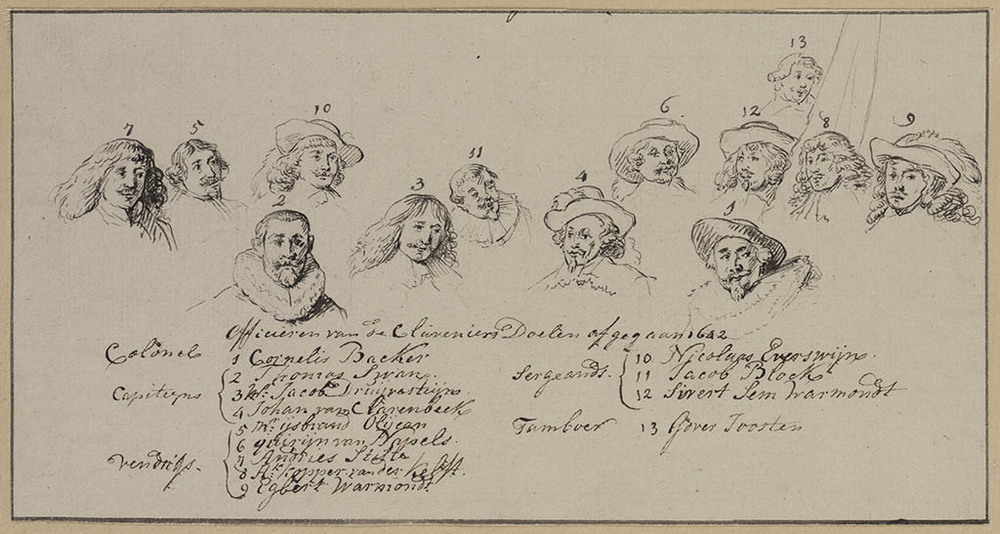 13
7
5
10
6
12
8
9
11
2
3
4
1
Officieren van de Clüveniers Doelen afgegaan 1642
Colonel 1 Cornelis Backer
Capiteyns
2 Thomas Swan.
3 Mr. Jacob Druijvesteijn
4 Johan van Clarenbeeck
Vendrigs.
5 Mr. ijsbrand
6 quirijn van Napels.
7 Andries
8 van der
9 Egbert Warmondt
Sergeands.
10 Nicolaas Everswijn.
11 Jacob Block
12 Sivert Sem Warmondt
Tamboer 13 Gover Joosten